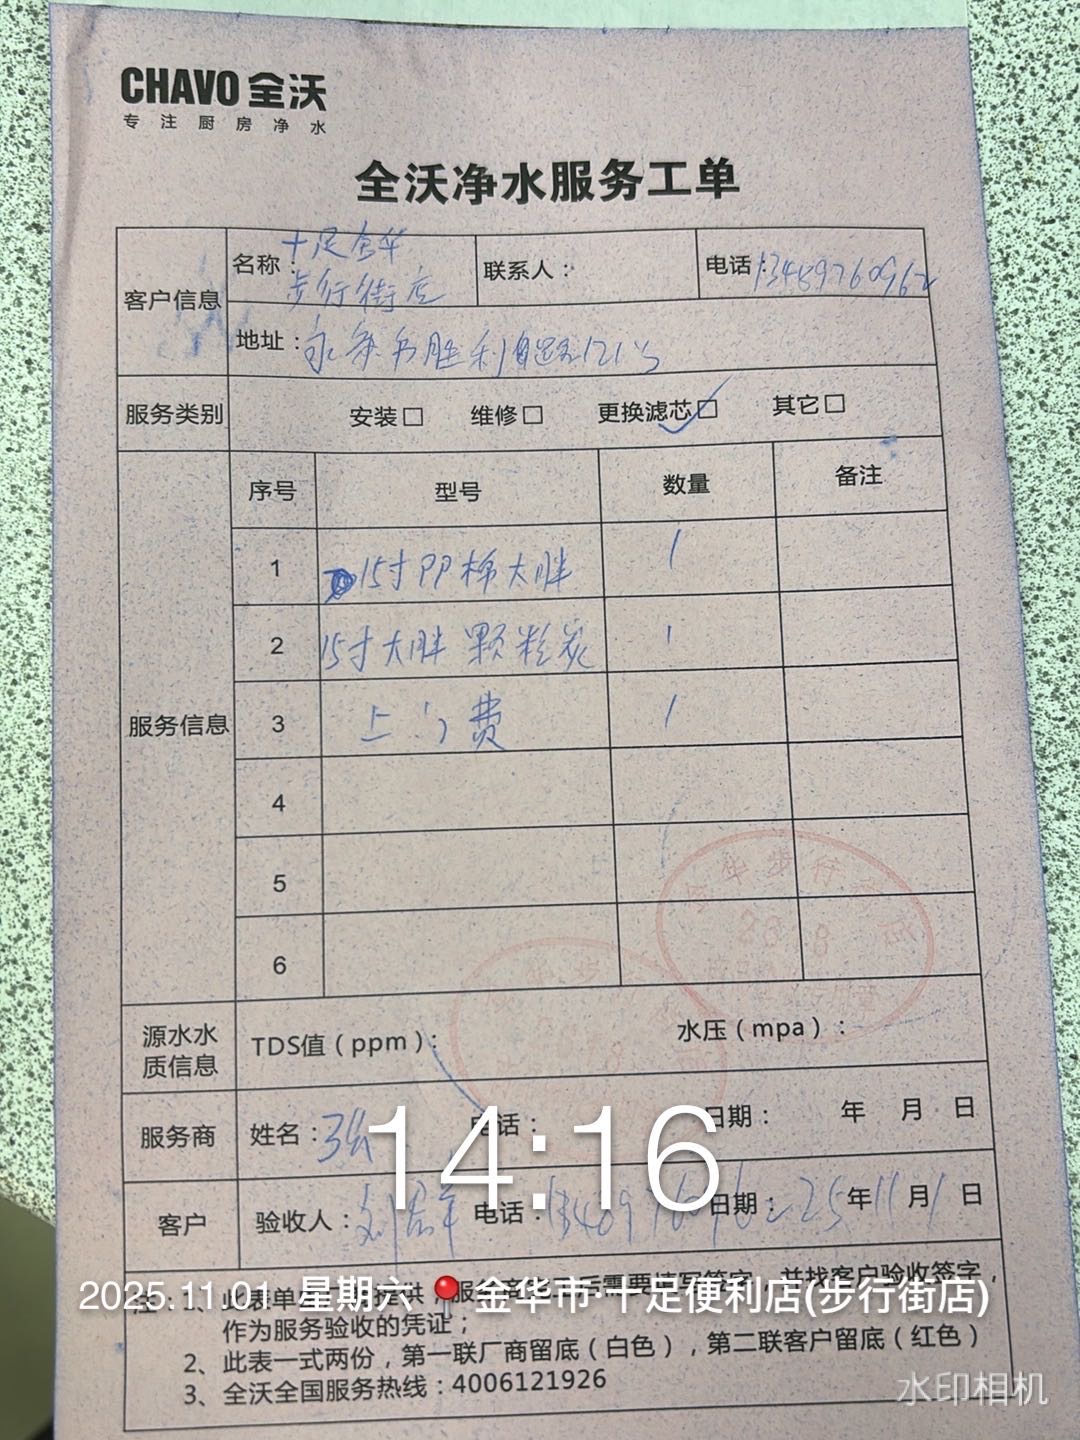 CHAVO 全沃
专注厨房净水
全沃净水服务工单
客户信息
名称：十足金华步行街店
联系人：
电话：13489760962
地址：
胜利
121号
服务类别
安装□ 维修□ 更换滤芯□ 其它□
服务信息
序号 型号 数量 备注
1 15寸PP棉大胖 1
2 15寸大胖 颗粒炭 1
3 上门费 1
4
5
6
金华步行
2018
源水水质信息
TDS值（ppm）： 水压（mpa）：
服务商 姓名：张 电话： 日期： 年 月 日
14:16
客户 验收人： 电话： 日期：25年11月1日
2025.11.01 星期六 金华市·十足便利店(步行街店)
注：1、此表单 并找客户验收签字，
作为服务验收的凭证；
2、此表一式两份，第一联厂商留底（白色），第二联客户留底（红色）
3、全沃全国服务热线：4006121926
水印相机